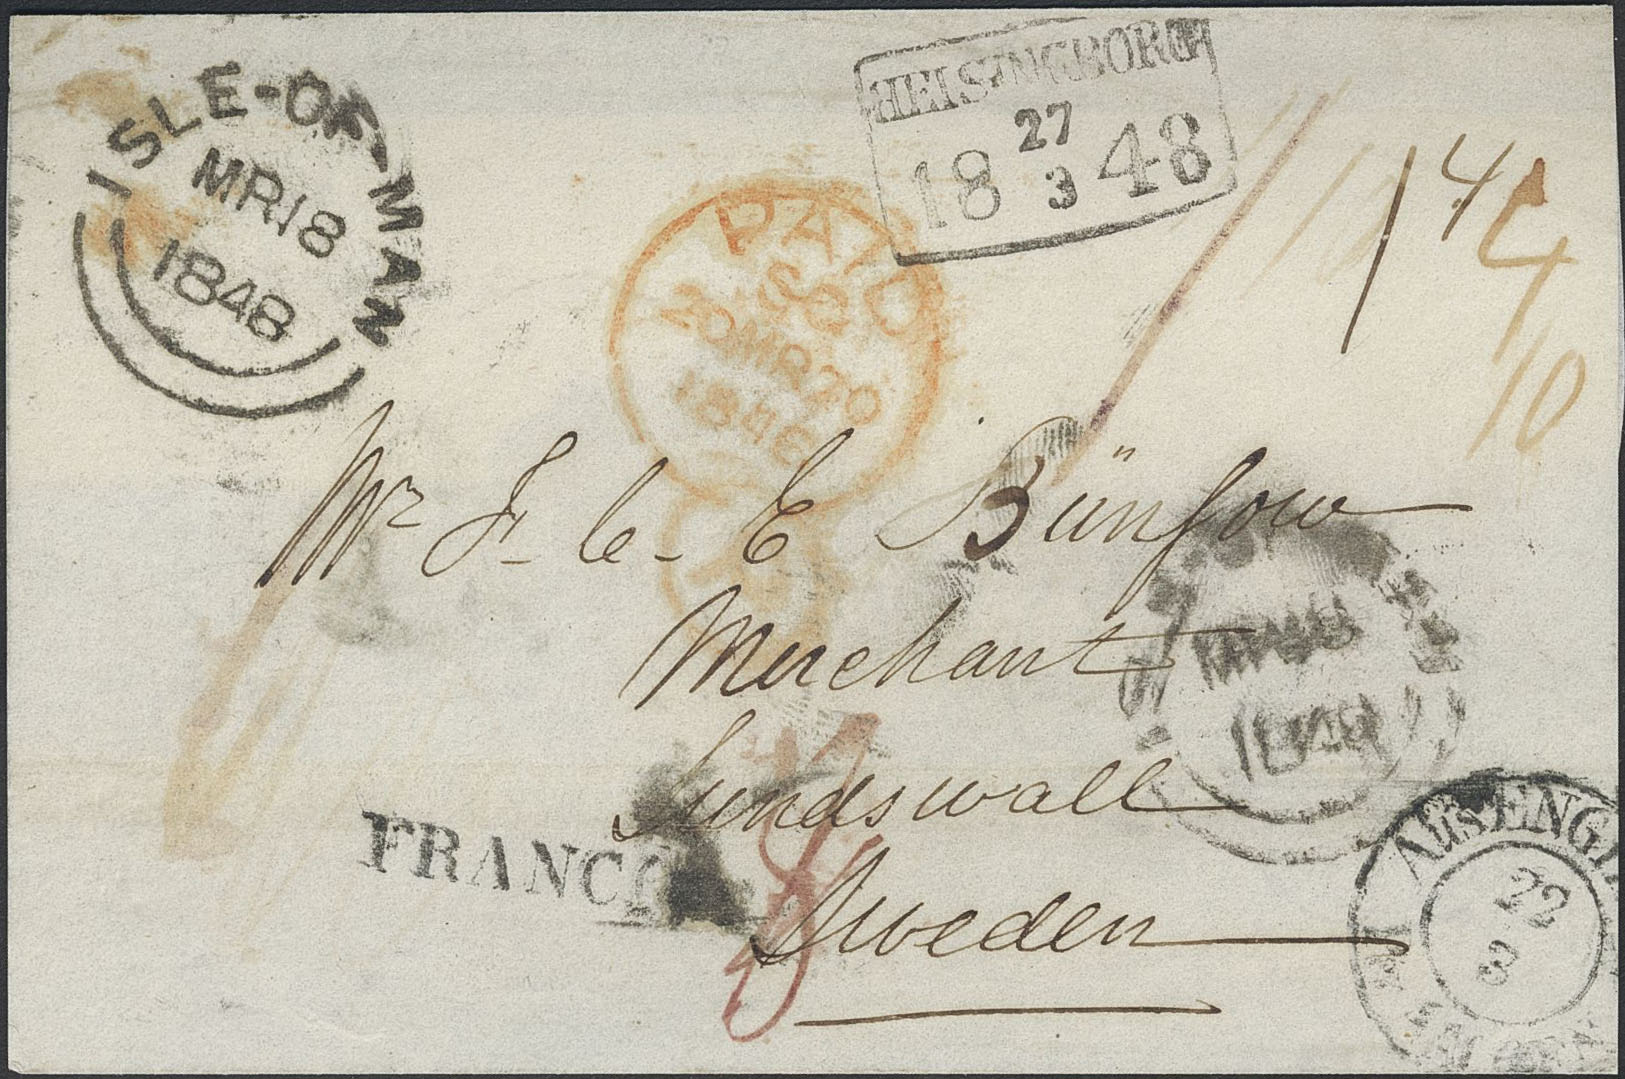 ISLE-OF-MAN
MR18
1848
HELSINGBORG
27
18 48
3
PAID
20MR20
1848
1 4
4
10
Mr F. C. E Bünsow
Merchant
Sundswall
Sweden
FRANCO
1848
AUS ENGL
22
3